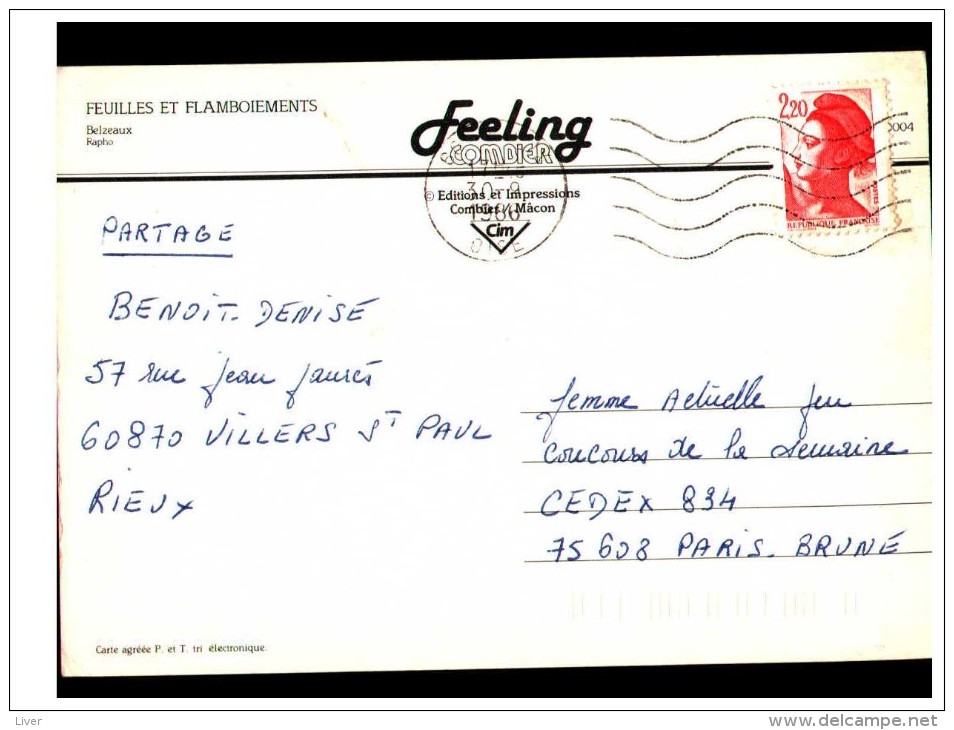 FEUILLES ET FLAMBOIEMENTS
Belzeaux
Rapho
Feeling
COMBIER
30-9
1986
OISE
© Editions et Impressions
Combier Mâcon
Cim
2,20
REPUBLIQUE FRANÇAISE
0004
PARTAGE
BENOIT. DENISE
57 rue Jean Jaurès
60870 VILLERS ST PAUL
RIEUX
femme Actuelle Jeu
concours de la semaine
CEDEX 834
75608 PARIS. BRUNE
Carte agréée P. et T. tri électronique.
Liver
www.delcampe.net